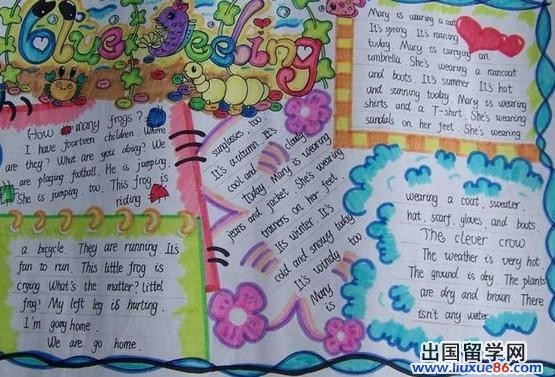 Blue Feeling
How many frogs?
I have fourteen children. Where
are they? What are you doing? We
are playing football. He is jumping.
She is jumping too. This frog is
riding
a bicycle. They are running. It's
fun to run. This little frog is
crying. What's the matter? Littel
frog? My left leg is hurting.
I'm gong home.
We are go home.
Mary is wearing a coat
It's spring. It's raining
today. Mary is carrying an
umbrella. She's wearing a raincoat
and boots. It's summer. It's hot
and sunning today. Mary is wearing
shirts and a T-shirt. She's wearing
sandals on her feet. She's wearing
sunglasses too.
It's autumn. It's
cool and cloudy
today Mary is wearing
jeans and jacket. She's wearing
trainers on her feet.
It's winter. It's
cold and snowy today
It's windy too.
Mary
is
wearing a coat, sweater,
hat, scarf, gloves, and boots.
The clever crow
The weather is very hot
The ground is dry. The plants
are dry and brown. There
isn't any water.
出国留学网
www.liuxue86.com